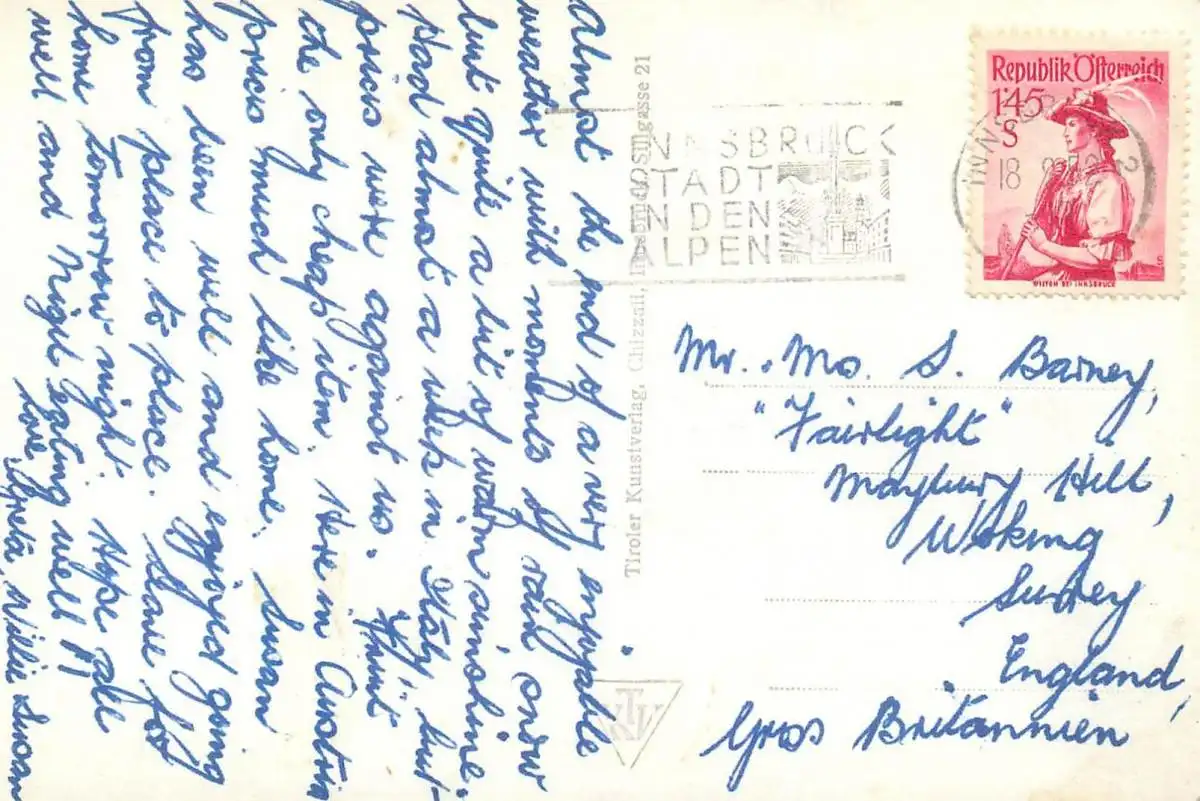 Almost the end of a very enjoyable
weather with moments of rain, snow
but quite a bit of warm sunshine.
Had almost a week in Italy, but
prices were against us. Fruit
the only cheap item. Here in Austria
prices much like home. Susan
has been well and enjoyed going
from place to place. Leave for
home tomorrow night. Hope all
well and Nigel eating well!!
love, Greta, Willie Susan
Tiroler Kunstverlag, Chizzali, Innsbruck, Sillgasse 21
INNSBRUCK
STADT
IN DEN
ALPEN
Republik Österreich
1'45
S
WILTEN BEI INNSBRUCK
18
KTV
Mr. . Mo. S. Barney,
"Fairlight"
Maybury Hill,
Woking
Surrey
England,
Gross Britannien